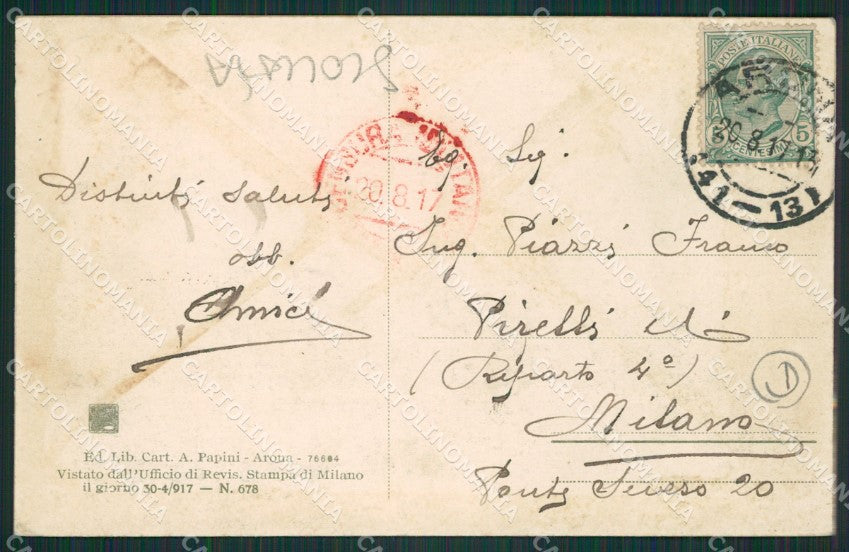 POSTE ITALIANE
5
CENTESIMI
20.8.17
41-13
CENSURA MILITARE
20.8.17
Eg. Sig.
Distinti saluti
Ing. Piazzi Franco
obb.
Amici
Pirelli
(Riparto 4º)
Milano
Ponte Seveso 20
Ed. Lib. Cart. A. Papini - Arona - 76604
Vistato dall'Ufficio di Revis. Stampa di Milano
il giorno 30-4/917 — N. 678
CARTOLINOMANIA